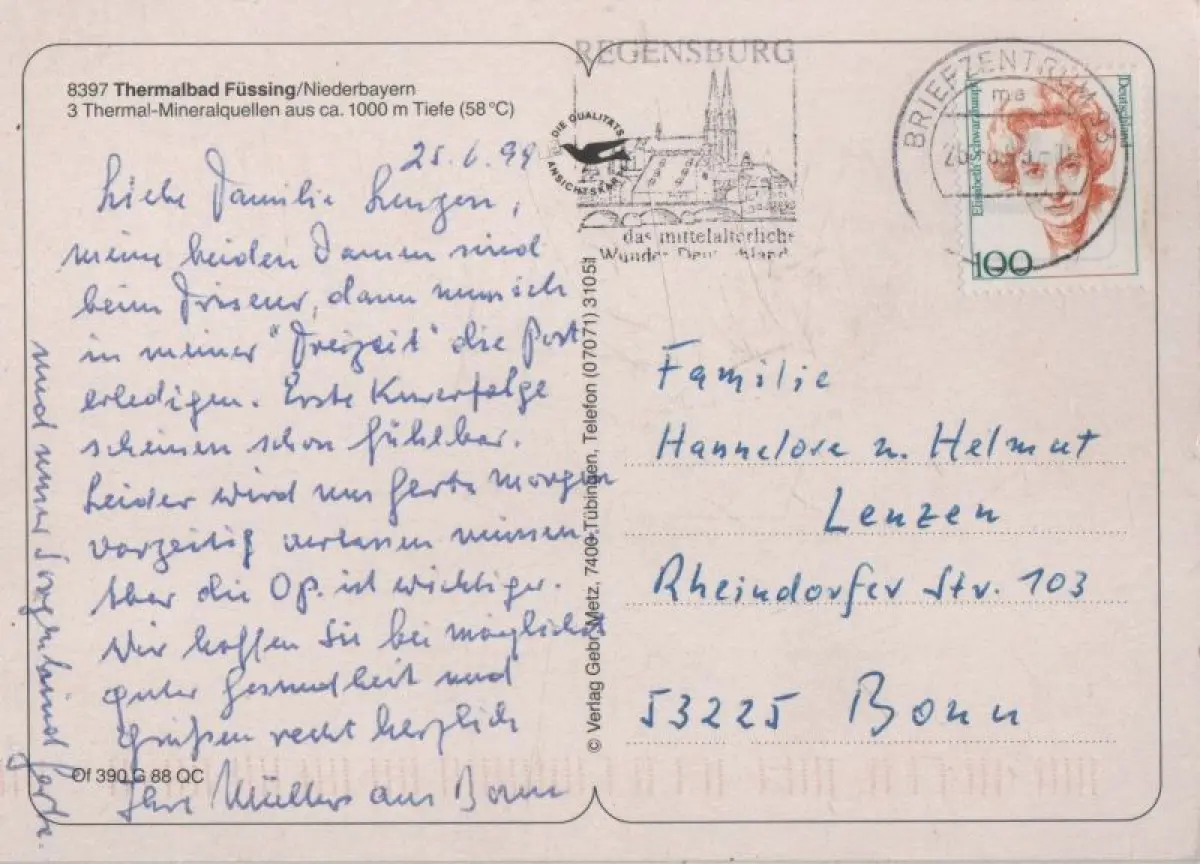 8397 Thermalbad Füssing/Niederbayern
3 Thermal-Mineralquellen aus ca. 1000 m Tiefe (58 °C)
25.6.99
Liebe Familie Lenzen,
meine beiden Damen sind
beim Friseur, dann muss ich
in meiner "Freizeit" die Post
erledigen. Erste Kurerfolge
scheinen schon fühlbar.
Leider wird uns Gerta morgen
vorzeitig verlassen müssen
Aber die Op. ist wichtiger.
Wir hoffen Sie bei möglichst
guter Gesundheit und
grüßen recht herzlich
Ihre Müllers aus Bonn
und unser Sorgenkind Gerta.
Of 390 G 88 QC
© Verlag Gebr. Metz, 7400 Tübingen, Telefon (07071) 31051
DIE QUALITÄTS
ANSICHTSKARTE
REGENSBURG
das mittelalterliche
Wunder Deutschlands
BRIEFZENTRUM 93
ma
Elisabeth Schwarzhaupt
Deutschland
100
Familie
Hannelore u. Helmut
Lenzen
Rheindorfer Str. 103
53225 Bonn